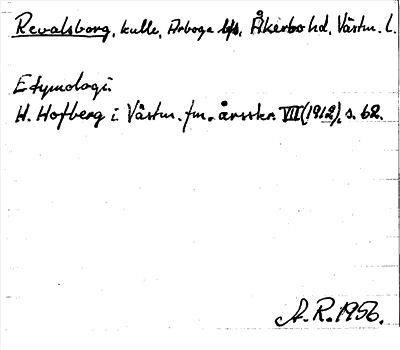 Revalsborg, kulle, Arboga lfs, Åkerbo hd, Västm. l.
Etymologi:
H. Hofberg i Västm. fm. årsskr. VII (1912), s. 62.
A. R. 1956.